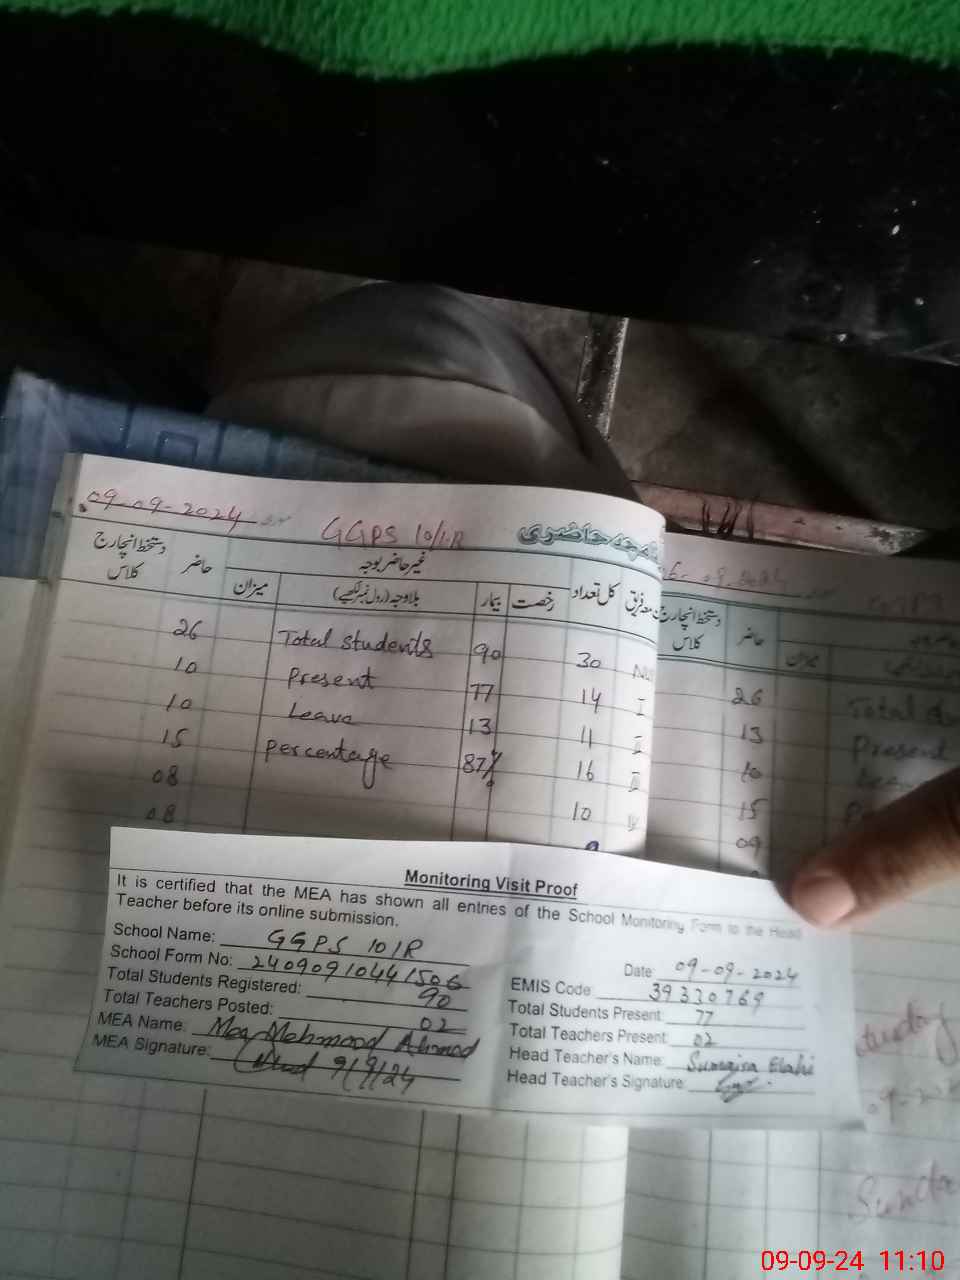 09-09-2024
GGPS 10/1R
حاضری
غیر حاضر بوجہ
دستخط انچارج کلاس
حاضر
میزان
بلاوجہ (رول نمبر لکھیے)
بیمار
رخصت
کل تعداد
26 Total students 90 30
10 Present 77 14 I
10 Leave 13 11 II
15 percentage 87% 16 III
08 10 IV
08
دستخط انچارج کلاس
حاضر
میزان
26 Total
13 Present
10
15
09
Monitoring Visit Proof
It is certified that the MEA has shown all entries of the School Monitoring Form to the Head
Teacher before its online submission.
School Name: GGPS 101R
Date 09-09-2024
School Form No: 24090910441506
EMIS Code 39330769
Total Students Registered: 90
Total Students Present: 77
Total Teachers Posted: 02
Total Teachers Present: 02
MEA Name: Mehmood Ahmad
Head Teacher's Name: Sumaira Elahi
MEA Signature: 9/9/24
Head Teacher's Signature:
09-09-24 11:10